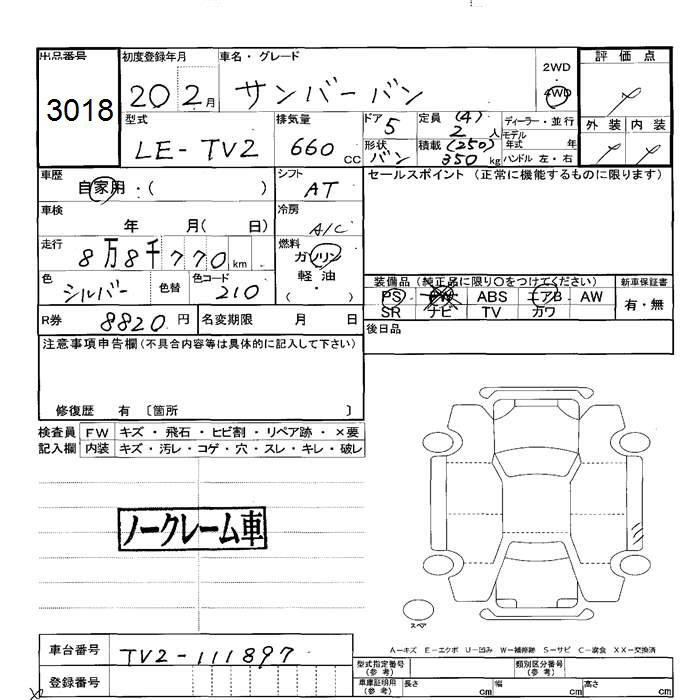 出品番号 初度登録年月 車名・グレード 2WD 4WD 評価点
3018 20 2月 サンバーバン
型式 排気量 ドア 定員 (4) ディーラー・並行 外装 内装
LE-TV2 660 CC 5 2 人 モデル年式 年
形状 バン 積載 (250) 350 kg ハンドル 左・右
車歴 シフト セールスポイント (正常に機能するものに限ります)
自家用・( ) AT
車検 冷房
年 月( 日) A/C
走行 燃料
8万8千770km ガソリン
色 色替 色コード 軽油
シルバー 210 ( ・ )
装備品 (純正品に限り○をつけてください) 新車保証書
PS PW ABS エアB AW 有・無
SR ナビ TV カワ
R券 8820円 名変期限 月 日 後日品
注意事項申告欄(不具合内容等は具体的に記入して下さい)
修復歴 有 〔箇所 〕
検査員 FW キズ・飛石・ヒビ割・リペア跡・×要
記入欄 内装 キズ・汚レ・コゲ・穴・スレ・キレ・破レ
ノークレーム車
スペア
A-キズ E-エクボ U-凹み W-補修跡 S-サビ C-腐食 XX-交換済
車台番号 TV2-111897
型式指定番号(参考) 類別区分番号(参考)
登録番号 車庫証明用(参考) 長さ cm 幅 cm 高さ cm